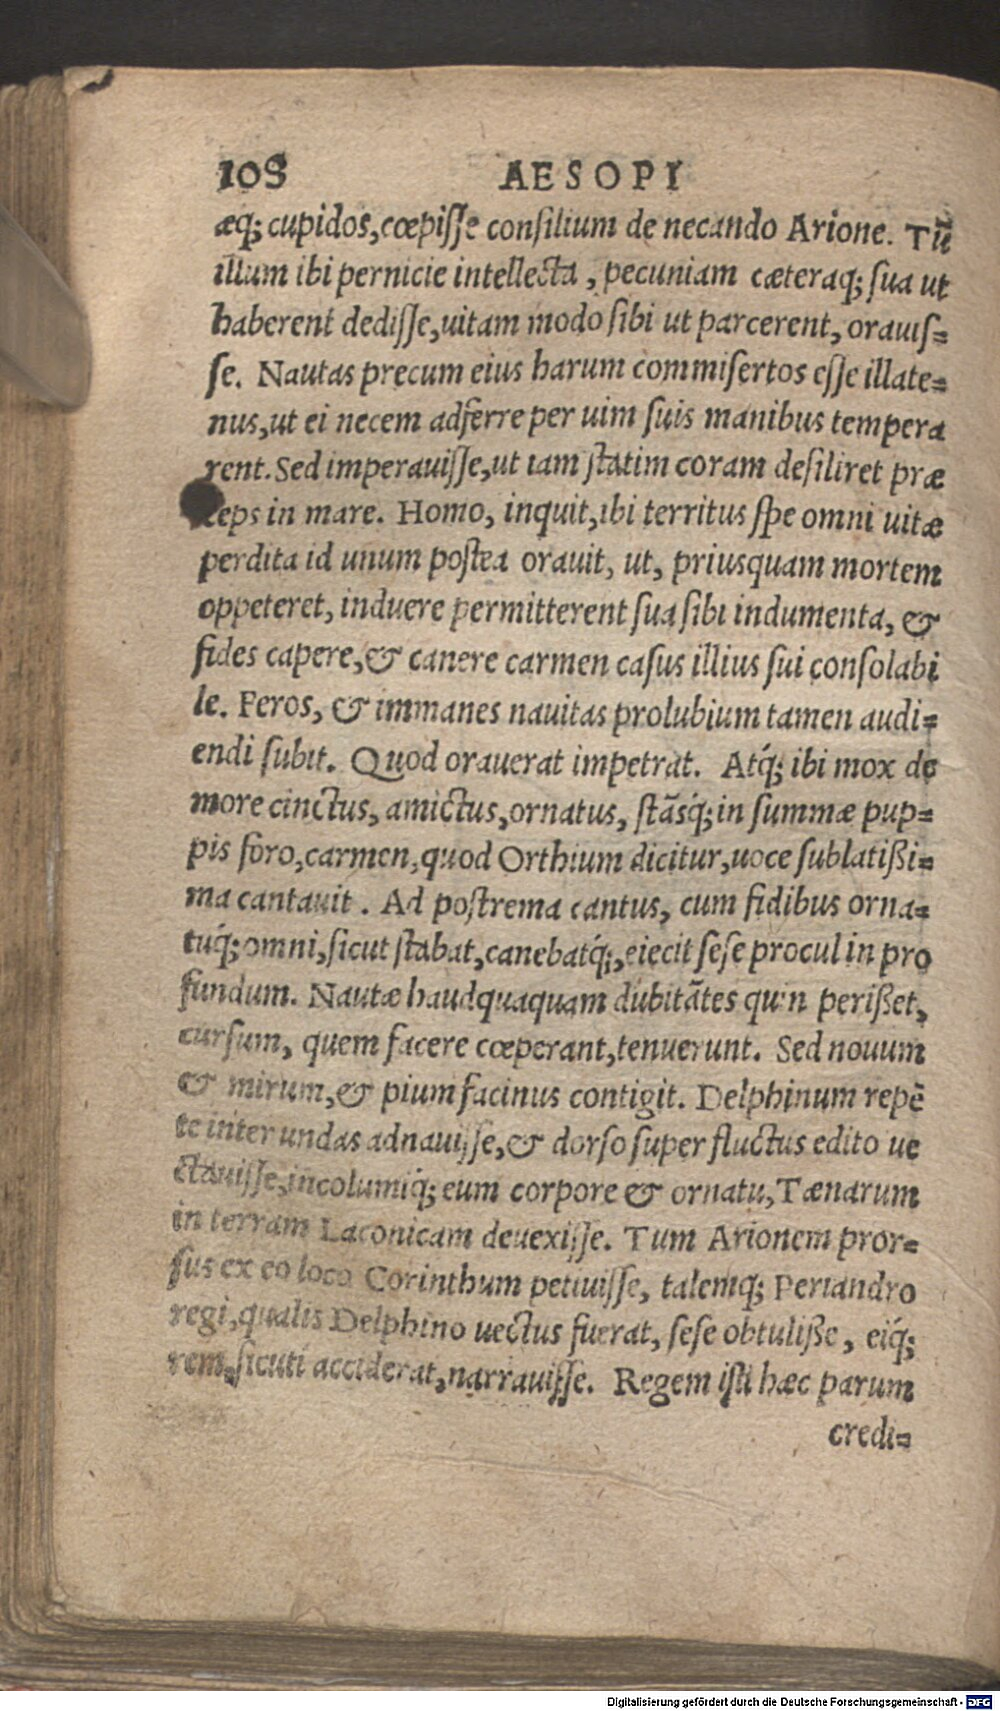 108 AESOPI
æq; cupidos, cœpiſſe conſilium de necando Arione. Tū
illum ibi pernicie intellecta, pecuniam cæteraq; ſua ut
haberent dediſſe, uitam modo ſibi ut parcerent, orauiſ=
ſe. Nautas precum eius harum commiſertos eſſe illate=
nus, ut ei necem adferre per uim ſuis manibus tempera
rent. Sed imperauiſſe, ut iam ſtatim coram deſiliret præ
eps in mare. Homo, inquit, ibi territus ſpe omni uitæ
perdita id unum poſtea orauit, ut, priusquam mortem
oppeteret, induere permitterent ſua ſibi indumenta, &
fides capere, & canere carmen caſus illius ſui conſolabi
le. Feros, & immanes nauitas prolubium tamen audi=
endi ſubit. Quod orauerat impetrat. Atq́; ibi mox de
more cinctus, amictus, ornatus, ſtãsq́; in ſummæ pup=
pis foro, carmen, quod Orthium dicitur, uoce ſublatißi=
ma cantauit. Ad poſtrema cantus, cum fidibus orna=
tuq́; omni, ſicut ſtabat, canebatq́;, eiecit ſeſe procul in pro
fundum. Nautæ haudquaquam dubitãtes quin perißet,
curſum, quem facere cœperant, tenuerunt. Sed nouum
& mirum, & pium facinus contigit. Delphinum repẽ
te inter undas adnauiſſe, & dorſo ſuper fluctus edito ue
ctauiſſe, incolumiq́; eum corpore & ornatu, Tænarum
in terram Laconicam deuexiſſe. Tum Arionem pror=
ſus ex eo loco Corinthum petiuiſſe, talemq; Periandro
regi, qualis Delphino uectus fuerat, ſeſe obtuliße, eiq́;
rem, ſicuti acciderat, narrauiſſe. Regem iſti hæc parum
credi=
Digitalisierung gefördert durch die Deutsche Forschungsgemeinschaft - DFG